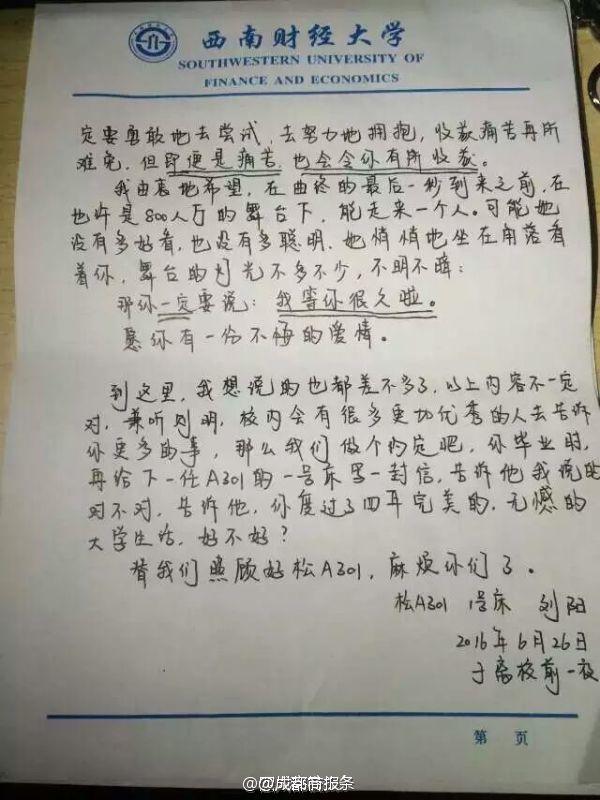 西南财经大学
SOUTHWESTERN UNIVERSITY OF
FINANCE AND ECONOMICS
定要勇敢地去尝试，去努力地拥抱，收获痛苦再所
难免，但即便是痛苦，也会令你有所收获。
我由衷地希望，在曲终的最后一秒到来之前，在
也许是800人厅的舞台下，能走来一个人。可能她
没有多好看，也没有多聪明，她悄悄地坐在角落看
着你，舞台的灯光不多不少，不明不暗：
那你一定要说：我等你很久啦。
愿你有一份不悔的爱情。
到这里，我想说的也都差不多了，以上内容不一定
对，兼听则明，校内会有很多更加优秀的人去告诉
你更多的事，那么我们做个约定吧，你毕业时，
再给下一任A301的一号床写一封信，告诉他我说的
对不对，告诉他，你度过了四年完美的，无憾的
大学生活，好不好？
替我们照顾好松A301，麻烦你们了。
松A301 1号床 刘阳
2016年6月26日
于离校前一夜
第 页
@成都商报条